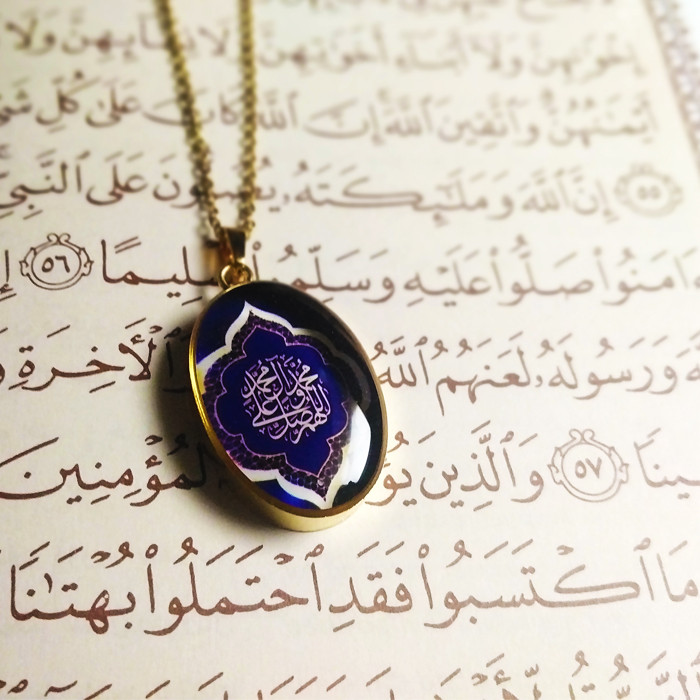 إِخْوَٰنِهِنَّ وَلَآ أَبْنَآءِ أَخَوَٰتِهِنَّ وَلَا نِسَآئِهِنَّ وَلَا
أَيْمَٰنُهُنَّ وَٱتَّقِينَ ٱللَّهَ إِنَّ ٱللَّهَ كَانَ عَلَىٰ كُلِّ
٥٥ إِنَّ ٱللَّهَ وَمَلَٰٓئِكَتَهُۥ يُصَلُّونَ عَلَى ٱلنَّبِيِّ
ءَامَنُوا۟ صَلُّوا۟ عَلَيْهِ وَسَلِّمُوا۟ تَسْلِيمًا ٥٦
وَرَسُولَهُۥ لَعَنَهُمُ ٱللَّهُ ٱلْأَخِرَةِ
٥٧ وَٱلَّذِينَ ٱلْمُؤْمِنِينَ
مَا ٱكْتَسَبُوا۟ فَقَدِ ٱحْتَمَلُوا۟ بُهْتَٰنًا
اللهم صل على محمد وآل محمد